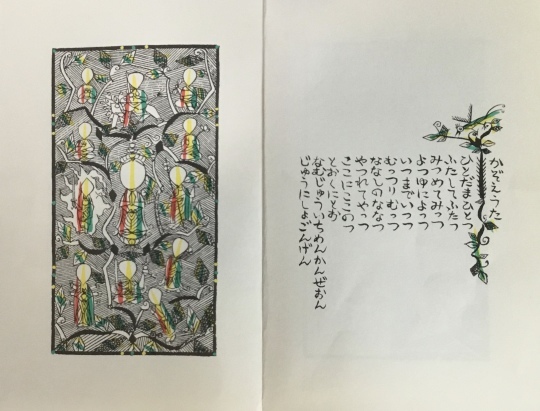 かぞえうた
ひとだまひとつ
ふたしてふたつ
みつめてみっつ
よつゆによっつ
いつまでいつつ
むっつりむっつ
ななしのななつ
やつれてやっつ
ここにここのつ
とおくにとお
なむじゅういちめんかんぜおん
じゅうにしょごんげん